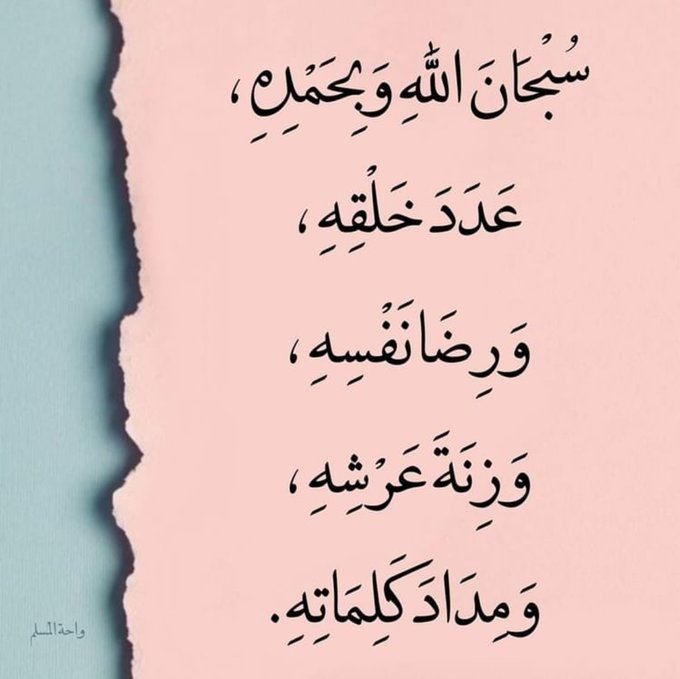 سُبْحَانَ اللَّهِ وَبِحَمْدِهِ،
عَدَدَ خَلْقِهِ،
وَرِضَا نَفْسِهِ،
وَزِنَةَ عَرْشِهِ،
وَمِدَادَ كَلِمَاتِهِ.
واحة المسلم